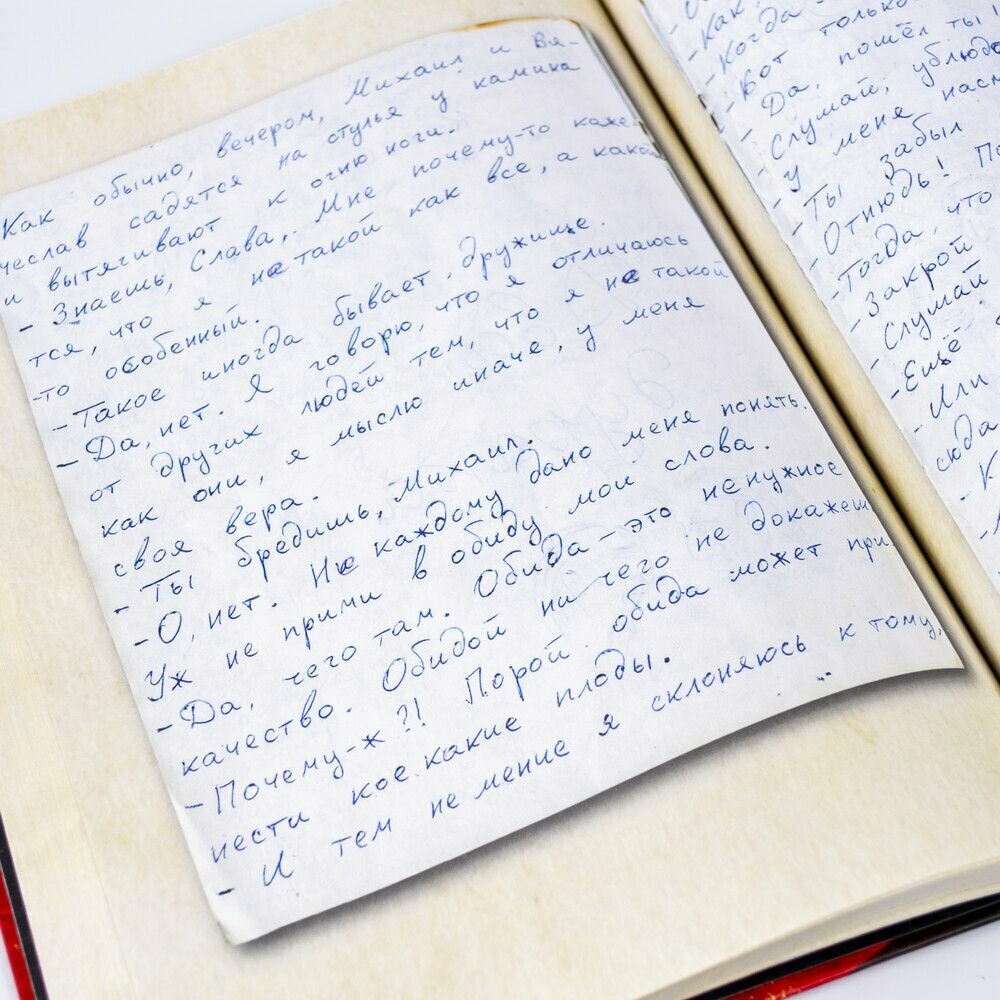 Как обычно, вечером, Михаил и Вя-
чеслав садятся на стулья у камина
и вытягивают к огню ноги.
- Знаешь, Слава,. Мне почему-то каже
тся, что я не такой как все, а какой
-то особенный.
- Такое иногда бывает, дружище.
- Да, нет. Я говорю, что я отличаюсь
от других людей тем, что я не такой
как они, я мыслю иначе, у меня
своя вера.
- Ты бредишь, Михаил.
- О, нет. Не каждому дано меня понять.
Уж не прими в обиду мои слова.
- Да, чего там. Обида - это ненужное
качество. Обидой ни чего не докажешь
- Почему-ж ?! Порой обида может при
нести кое какие плоды.
- И тем не мение я склоняюсь к тому,
- Как
- Когда -
- Вот только
- Да, пошёл ты
Слушай, ублюдо
у меня насм
- Ты забыл
- Отнюдь! По
- Тогда, что
- Закрой
- Слушай
- Ещё
- Или
сюда